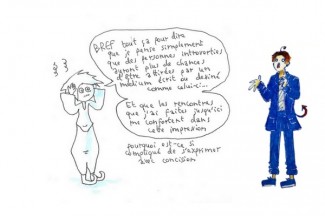 BREF tout ça pour dire
que je pense simplement
que des personnes introverties
auront plus de chances
d'être attirées par un
médium écrit ou dessiné
comme celui-ci...
Et que les rencontres
que j'ai faites jusqu'ici
me confortent dans
cette impression
pourquoi est-ce si
compliqué de s'exprimer
avec concision